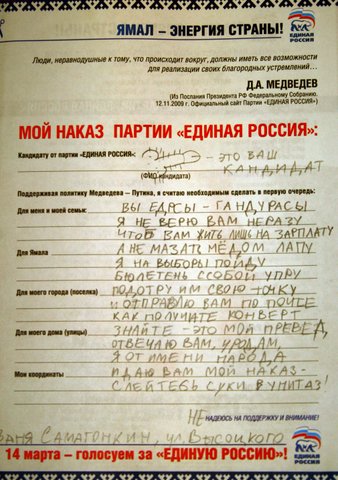 ЯМАЛ – ЭНЕРГИЯ СТРАНЫ!
ЕДИНАЯ
РОССИЯ
Люди, неравнодушные к тому, что происходит вокруг, должны иметь все возможности
для реализации своих благородных устремлений…
Д.А. МЕДВЕДЕВ
(Из Послания Президента РФ Федеральному Собранию.
12.11.2009 г. Официальный сайт Партии «ЕДИНАЯ РОССИЯ»)
МОЙ НАКАЗ ПАРТИИ «ЕДИНАЯ РОССИЯ»:
Кандидату от партии «ЕДИНАЯ РОССИЯ» - ЭТО ВАШ
КАНДИДАТ
(ФИО кандидата)
Поддерживая политику Медведева – Путина, я считаю необходимым сделать в первую очередь:
Для меня и моей семьи: ВЫ ЕДРСЫ - ГАНДУРАСЫ
Я НЕ ВЕРЮ ВАМ НЕРАЗУ
ЧТОБ ВАМ ЖИТЬ ЛИШЬ НА ЗАРПЛАТУ
Для Ямала А НЕ МАЗАТЬ МЁДОМ ЛАПУ
Я НА ВЫБОРЫ ПОЙДУ
БЮЛЕТЕНЬ ССОБОЙ УПРУ
Для моего города (поселка) ПОДОТРУ ИМ СВОЮ ТОЧКУ
И ОТПРАВЛЮ ВАМ ПО ПОЧТЕ
КАК ПОЛУЧИТЕ КОНВЕРТ
Для моего дома (улицы) ЗНАЙТЕ - ЭТО МОЙ ПРЕВЕД,
ОТВЕЧАЮ ВАМ, УРОДАМ,
Я ОТ ИМЕНИ НАРОДА
Мои координаты И ДАЮ ВАМ МОЙ НАКАЗ-
СЛЕЙТЕСЬ СУКИ В УНИТАЗ!
НЕ НАДЕЮСЬ НА ПОДДЕРЖКУ И ВНИМАНИЕ!
ВАНЯ САМАГОНКИН, УЛ. ВЫСОЦКОГО
14 марта – голосуем за «ЕДИНУЮ РОССИЮ»!
ЕДИНАЯ
РОССИЯ